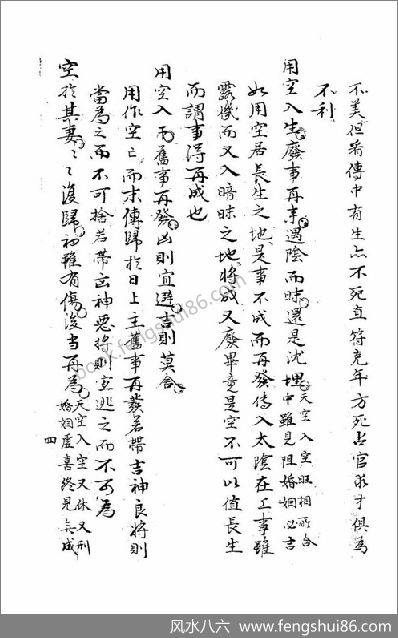 不美但若傳中有生亦不死直符克年方死占官求才俱為
不利
用空入生廢事再手遇陰而時還是沈埋天空入空取相而合
中雖見阻婚姻必吉
如用空居長生之地是事不成而再發傳入太陰在工事雖
露機而又入暗昧之地將成又廢畢竟是空不可以值長生
而謂事得再成也
用空入而舊事再發凶則宜避吉則莫舍
用作空亡而末傳歸於日上主舊事再發若帶吉神良將則
當為之而不可捨若帶凶神惡將則宜逃之而不可為
空於其妻妻復歸初雖有傷後當再為天空入空又休又刑
婚姻虛喜終見無成
四
book.fengshui86.com
风水八六 www.fengshui86.com